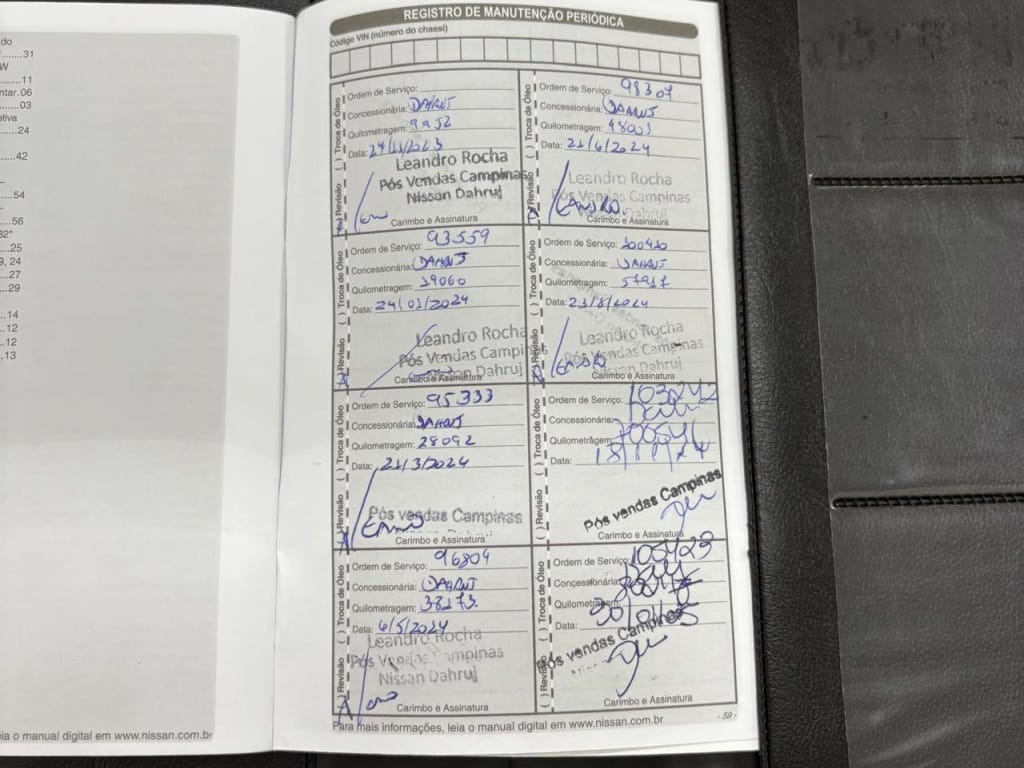 do
.......31
W
......11
ntar.06
......03
etiva
.......24
....42
....54
....56
32*
...25
9, 24
....27
....29
...14
...12
...12
...13
ia o manual digital em www.nissan.com.br
REGISTRO DE MANUTENÇÃO PERIÓDICA
Código VIN (número do chassi)
( ) Revisão ( ) Troca de Óleo
Ordem de Serviço:
Concessionária: DAHRUJ
Quilometragem: 9952
Data: 24/11/2023
Leandro Rocha
Pós Vendas Campinas
Nissan Dahruj
Carimbo e Assinatura
( ) Revisão ( ) Troca de Óleo
Ordem de Serviço: 93559
Concessionária: DAHRUJ
Quilometragem: 19060
Data: 24/01/2024
Leandro Rocha
Pós Vendas Campinas
Nissan Dahruj
Carimbo e Assinatura
( ) Revisão ( ) Troca de Óleo
Ordem de Serviço: 95333
Concessionária: DAHRUJ
Quilometragem: 28092
Data: 21/3/2024
Pós vendas Campinas
Carimbo e Assinatura
( ) Revisão ( ) Troca de Óleo
Ordem de Serviço: 96804
Concessionária: DAHRUJ
Quilometragem: 38173
Data: 6/5/2024
Leandro Rocha
Pós Vendas Campinas
Nissan Dahruj
Carimbo e Assinatura
( ) Revisão ( ) Troca de Óleo
Ordem de Serviço: 98307
Concessionária: DAHRUJ
Quilometragem: 48001
Data: 21/6/2024
Leandro Rocha
Pós Vendas Campinas
Nissan Dahruj
Carimbo e Assinatura
( ) Revisão ( ) Troca de Óleo
Ordem de Serviço: 100420
Concessionária: DAHRUJ
Quilometragem: 57917
Data: 23/8/2024
Leandro Rocha
Pós Vendas Campinas
Nissan Dahruj
Carimbo e Assinatura
( ) Revisão ( ) Troca de Óleo
Ordem de Serviço: 103242
Concessionária:
Quilometragem:
Data: 18/11/24
Pós vendas Campinas
Carimbo e Assinatura
( ) Revisão ( ) Troca de Óleo
Ordem de Serviço: 105423
Concessionária:
Quilometragem:
Data: 30/01/25
Pós vendas Campinas
Carimbo e Assinatura
Para mais informações, leia o manual digital em www.nissan.com.br
- 59 -